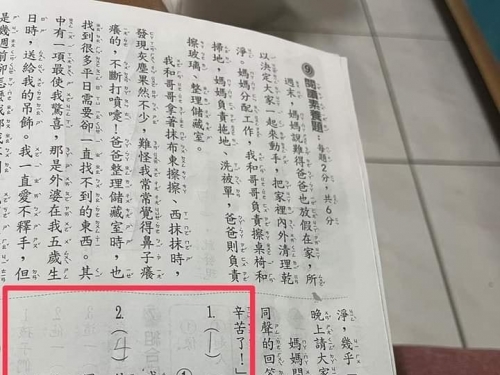 ⑨閱讀素養題：每題2分，共6分
週末，媽媽說難得爸爸也放假在家，所
以決定大家一起來動手，把家裡內外清理乾
淨。媽媽分配工作，我和哥哥負責擦桌椅和
掃地，媽媽負責拖地、洗被單，爸爸則負責
擦玻璃、整理儲藏室。
我和哥哥拿著抹布東擦擦、西抹抹時，
發現灰塵果然不少，難怪我常常覺得鼻子癢
癢的，不斷打噴嚏！爸爸整理儲藏室時，也
找到很多平日需要卻一直找不到的東西。其
中有一項最使我驚喜，那是外婆在我五歲生
日時，送給我的吊飾。我一直愛不釋手，但
淨，幾乎一
晚上請大家
媽媽問
同聲的回答
辛苦了！」
1.(1)
2.(4)